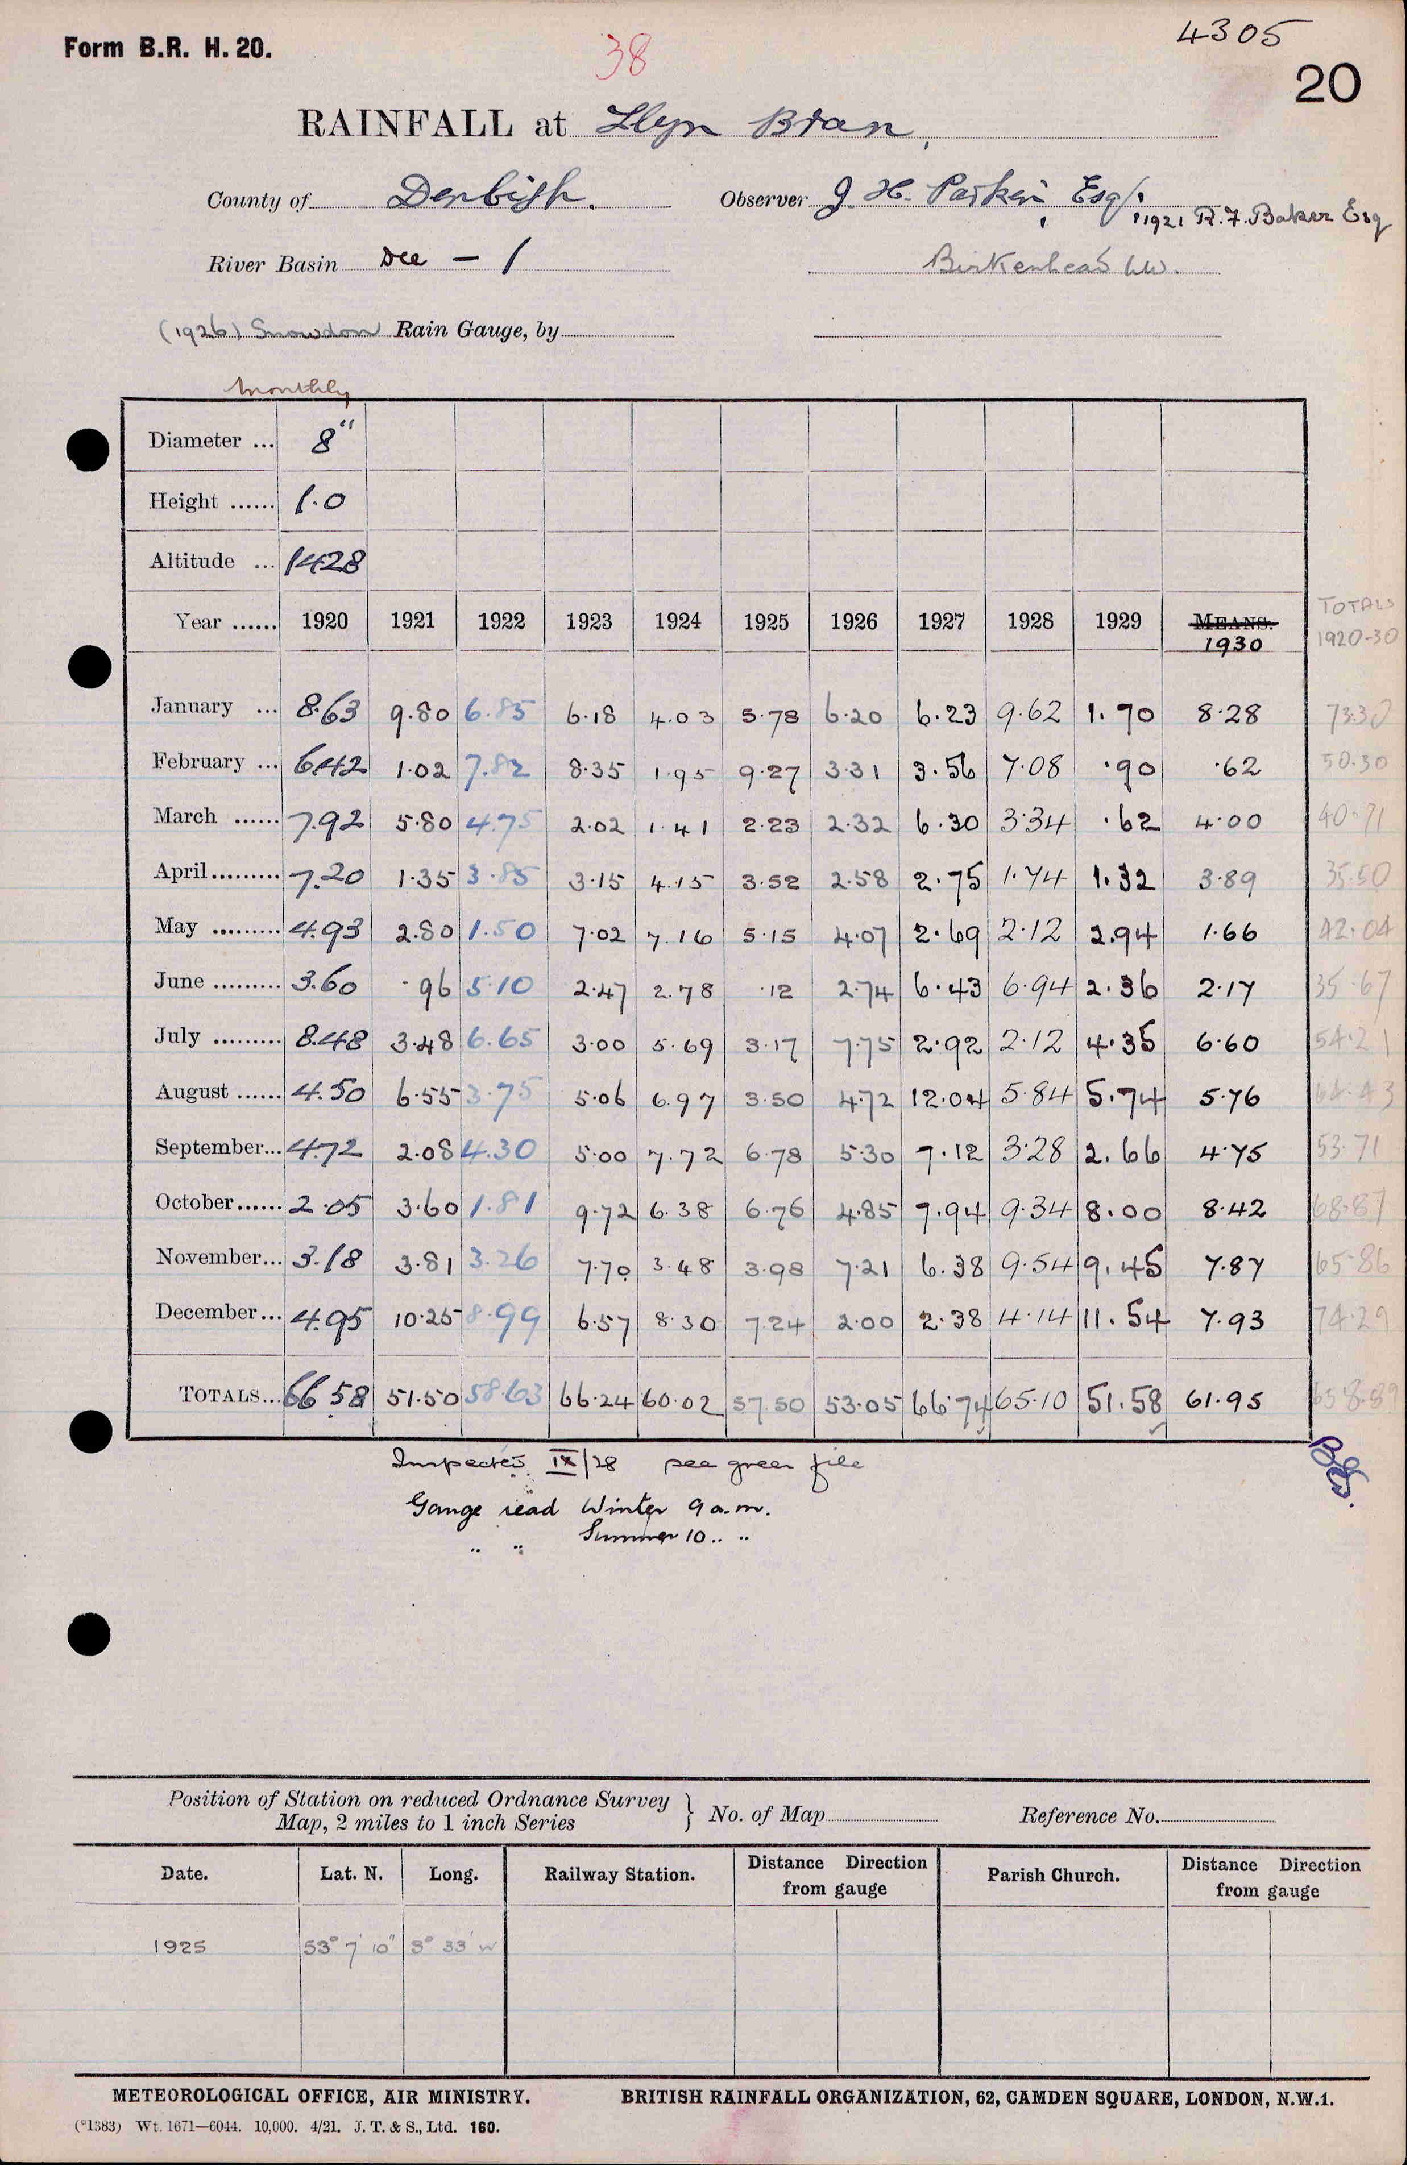 Form B.R. H. 20.
38
4305
20
RAINFALL at Llyn Bran,
County of Denbigh. Observer J. H. Parkin, Esq.
1921 R.F. Baker Esq
River Basin Dee — 1 Birkenhead WW.
(1926) Snowdon Rain Gauge, by
Monthly
Diameter ... 8"
Height ...... 1.0
Altitude ... 1428
Year ...... 1920 1921 1922 1923 1924 1925 1926 1927 1928 1929 MEANS. 1930 TOTALS 1920-30
January ... 8.63 9.80 6.85 6.18 4.03 5.78 6.20 6.23 9.62 1.70 8.28 73.30
February ... 6.42 1.02 7.82 8.35 1.95 9.27 3.31 3.56 7.08 .90 .62 50.30
March ...... 7.92 5.80 4.75 2.02 1.41 2.23 2.32 6.30 3.34 .62 4.00 40.71
April......... 7.20 1.35 3.85 3.15 4.15 3.52 2.58 2.75 1.74 1.32 3.89 35.50
May ......... 4.93 2.80 1.50 7.02 7.16 5.15 4.07 2.69 2.12 2.94 1.66 42.04
June ......... 3.60 .96 5.10 2.47 2.78 .12 2.74 6.43 6.94 2.36 2.17 35.67
July ......... 8.48 3.48 6.65 3.00 5.69 3.17 7.75 2.92 2.12 4.35 6.60 54.21
August ...... 4.50 6.55 3.75 5.06 6.97 3.50 4.72 12.04 5.84 5.74 5.76 64.43
September... 4.72 2.08 4.30 5.00 7.72 6.78 5.30 7.12 3.28 2.66 4.75 53.71
October...... 2.05 3.60 1.81 9.72 6.38 6.76 4.85 7.94 9.34 8.00 8.42 68.87
November... 3.18 3.81 3.26 7.70 3.48 3.98 7.21 6.38 9.54 9.45 7.87 65.86
December... 4.95 10.25 8.99 6.57 8.30 7.24 2.00 2.38 4.14 11.54 7.93 74.29
TOTALS... 66.58 51.50 58.63 66.24 60.02 57.50 53.05 66.74 65.10 51.58 61.95 658.89
Inspected IX/28 see green file
Gauge read Winter 9 a.m.
" " Summer 10 .. ..
Position of Station on reduced Ordnance Survey
Map, 2 miles to 1 inch Series } No. of Map Reference No.
Date. Lat. N. Long. Railway Station. Distance Direction from gauge Parish Church. Distance Direction from gauge
1925 53° 7' 10" 3° 33' W
METEOROLOGICAL OFFICE, AIR MINISTRY. BRITISH RAINFALL ORGANIZATION, 62, CAMDEN SQUARE, LONDON, N.W.1.
(*1383) Wt. 1671—6044. 10,000. 4/21. J. T. & S., Ltd. 160.